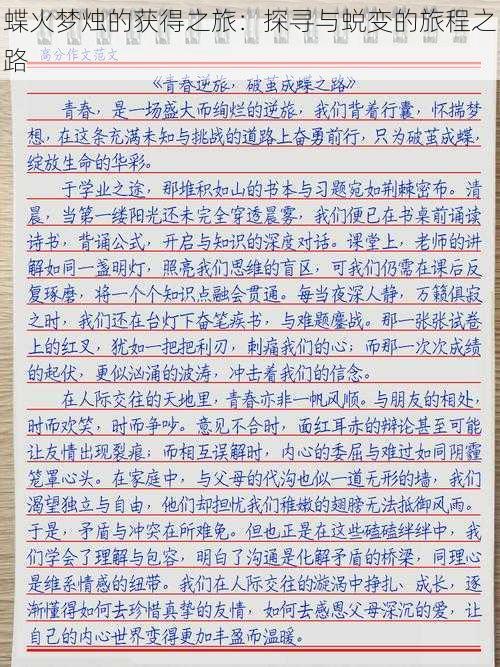 蝶火梦烛的获得之旅：探寻与蜕变的旅程之
路
高分作文范文
《青春逆旅，破茧成蝶之路》
青春，是一场盛大而绚烂的逆旅，我们背着行囊，怀揣梦
想，在这条充满未知与挑战的道路上奋勇前行，只为破茧成蝶，
绽放生命的华彩。
于学业之途，那堆积如山的书本与习题宛如荆棘密布。清
晨，当第一缕阳光还未完全穿透晨雾，我们便已在书桌前诵读
诗书，背诵公式，开启与知识的深度对话。课堂上，老师的讲
解如同一盏明灯，照亮我们思维的盲区，可我们仍需在课后反
复琢磨，将一个个知识点融会贯通。每当夜深人静，万籁俱寂
之时，我们还在台灯下奋笔疾书，与难题鏖战。那一张张试卷
上的红叉，犹如一把把利刃，刺痛我们的心；而那一次次成绩
的起伏，更似汹涌的波涛，冲击着我们的信念。
在人际交往的天地里，青春亦非一帆风顺。与朋友的相处，
时而欢笑，时而争吵。意见不合时，面红耳赤的辩论甚至可能
让友情出现裂痕；而相互误解时，内心的委屈与难过如同阴霾
笼罩心头。在家庭中，与父母的代沟也似一道无形的墙，我们
渴望独立与自由，他们却担忧我们稚嫩的翅膀无法抵御风雨。
于是，矛盾与冲突在所难免。但也正是在这些磕磕绊绊中，我
们学会了理解与包容，明白了沟通是化解矛盾的桥梁，同理心
是维系情感的纽带。我们在人际交往的漩涡中挣扎、成长，逐
渐懂得如何去珍惜真挚的友情，如何去感恩父母深沉的爱，让
自己的内心世界变得更加丰盈而温暖。